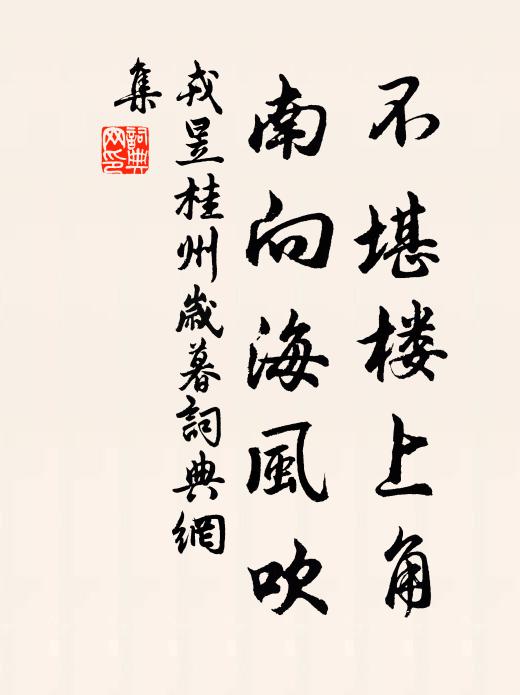 不堪楼上角
南向海風吹
戎昱桂州歲暮詞典網
集
詞典网印